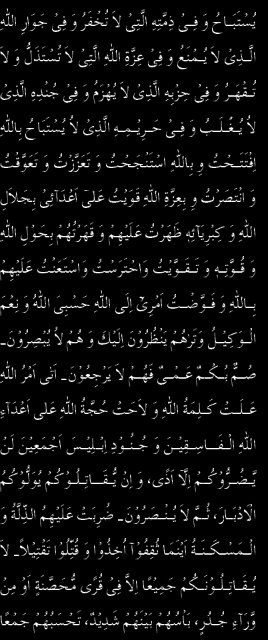 يُسْتَبَاحُ وَ فِىْ ذِمَّتِهِ الَّتِىْ لَا تُخْفَرُ وَ فِىْ جَوَارِ اللهِ
الَّذِىْ لَا يُمْنَعُ وَ فِىْ عِزَّةِ اللهِ الَّتِىْ لَا تُسْتَذَلُّ وَ لَا
تُقْهَرُ وَ فِىْ حِزْبِهِ الَّذِىْ لَا يُهْزَمُ وَ فِىْ جُنْدِهِ الَّذِىْ
لَا يُغْلَبُ وَ فِىْ حَرِيْمِهِ الَّذِىْ لَا يُسْتَبَاحُ بِاللهِ
اِفْتَتَحْتُ وَ بِاللهِ اسْتَنْجَحْتُ وَ تَعَزَّزْتُ وَ تَعَوَّذْتُ
وَ انْتَصَرْتُ وَ بِعِزَّةِ اللهِ قَوِيْتُ عَلىٰ اَعْدَآئِىْ بِجَلَالِ
اللهِ وَ كِبْرِيَآئِهِ ظَهَرْتُ عَلَيْهِمْ وَ قَهَرْتُهُمْ بِحَوْلِ اللهِ
وَ قُوَّتِهِ وَ تَقَوَّيْتُ وَاحْتَرَسْتُ وَاسْتَعَنْتُ عَلَيْهِمْ
بِاللهِ وَ فَوَّضْتُ اَمْرِىْ اِلَى اللهِ حَسْبِىَ اللهُ وَ نِعْمَ
الْوَكِيْلُ وَتَرٰهُمْ يَنْظُرُوْنَ اِلَيْكَ وَ هُمْ لَا يُبْصِرُوْنَ۔
صُمٌّ بُكْمٌ عُمْىٌ فَهُمْ لَا يَرْجِعُوْنَ۔ اَتٰى اَمْرُ اللهِ
عَلَتْ كَلِمَةُ اللهِ وَ لَاحَتْ حُجَّةُ اللهِ عَلٰى اَعْدَآءِ
اللهِ الْفَاسِقِيْنَ وَ جُنُوْدِ اِبْلِيْسَ اَجْمَعِيْنَ لَنْ
يَّضُرُّوْكُمْ اِلَّا اَذًى، وَ اِنْ يُّقَاتِلُوْكُمْ يُوَلُّوْكُمُ
الْاَدْبَارَ، ثُمَّ لَا يُنْصَرُوْنَ۔ ضُرِبَتْ عَلَيْهِمُ الذِّلَّةُ وَ
الْمَسْكَنَةُ اَيْنَمَا ثُقِفُوْآ اُخِذُوْا وَ قُتِّلُوْا تَقْتِيْلًا۔ لَا
يُقَاتِلُوْنَكُمْ جَمِيْعًا اِلَّا فِىْ قُرًى مُّحَصَّنَةٍ اَوْ مِنْ
وَّرَآءِ جُدُرٍ، بَاْسُهُمْ بَيْنَهُمْ شَدِيْدٌ، تَحْسَبُهُمْ جَمْعًا